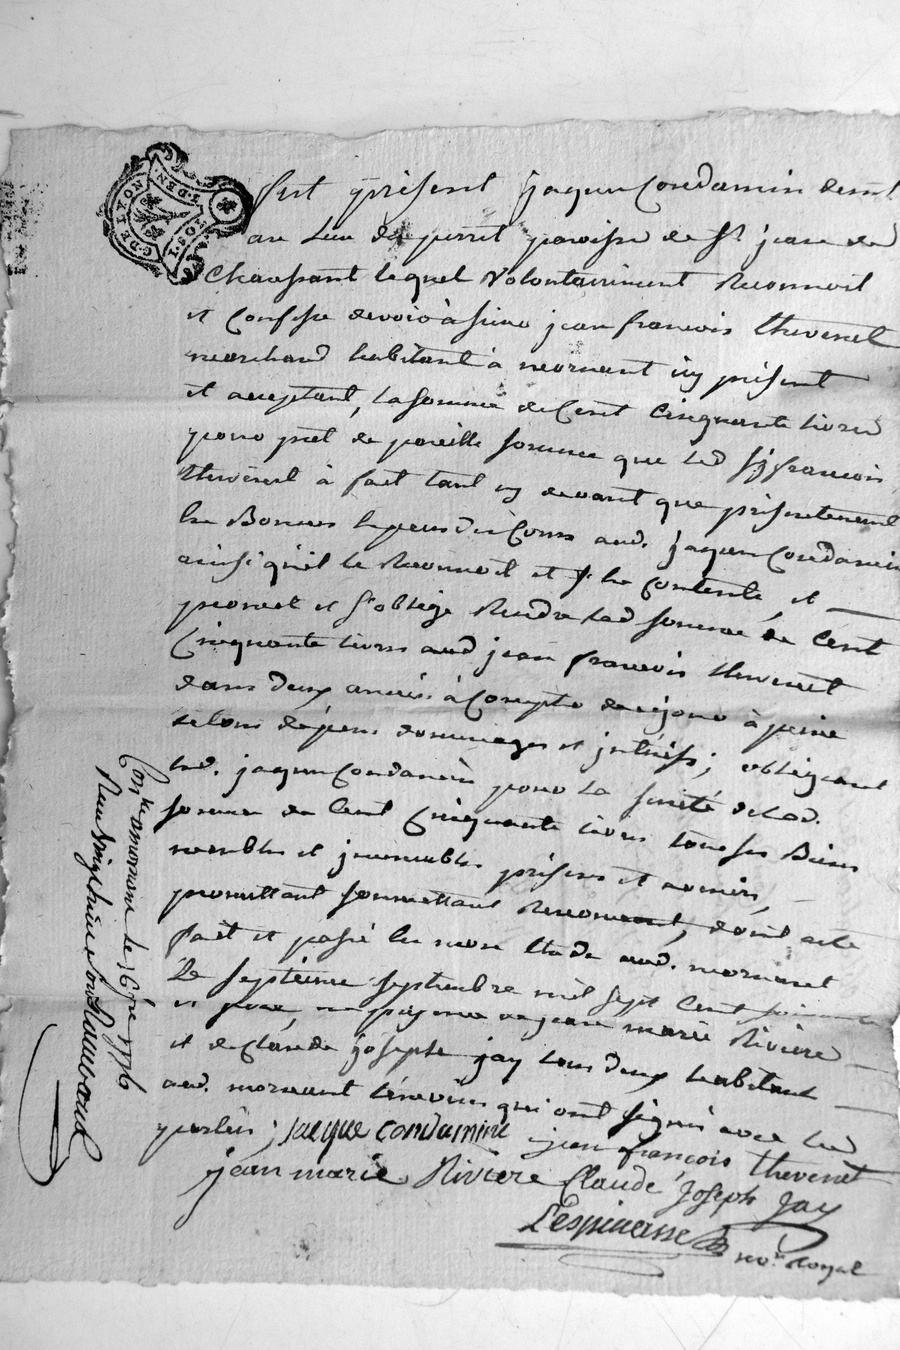 G. DE LYON
1. SOL. 4. DEN.
fut présent jaques Condamin dem.t
au Lieu de perret paroisse de St jean de
Chaussant lequel volontairement Reconnoit
et Confesse devoir à sieur jean francois thevenet
marchand habitant à mornant icy présent
et acceptant, La somme de Cent Cinquante livres
pour prêt de pareille somme que led Sr francois
thevenet à fait tant cy devant que présentement
aud. jaques Condamin
ainsi qu'il le Reconnoit et se contente, et
promet et s'oblige Rendre lad somme de Cent
Cinquante livres aud jean francois thevenet
dans deux années à Compter de ce jour à peine
de tous dépens dommages et intérêts; obligeant
led. jaques Condamin pour la sureté de lad.
somme de Cent Cinquante livres tous ses Biens
meubles et immeubles présens et avenir,
promettant soumettant Renonçant, dont acte
fait et passé en mon Etude aud. mornant
Le septième septembre mil sept Cent
en présence de jean marie Rivière
et de Claude joseph jay tous deux habitant
aud. mornant témoins qui ont signés avec les
parties; jacque condamine jean françois thevenet
jean marie Riviere Claude Joseph Jay
Lespinasse no.re Royal
Con.lé a mornant le 16 7bre 1776
Reçu vingt huit sous